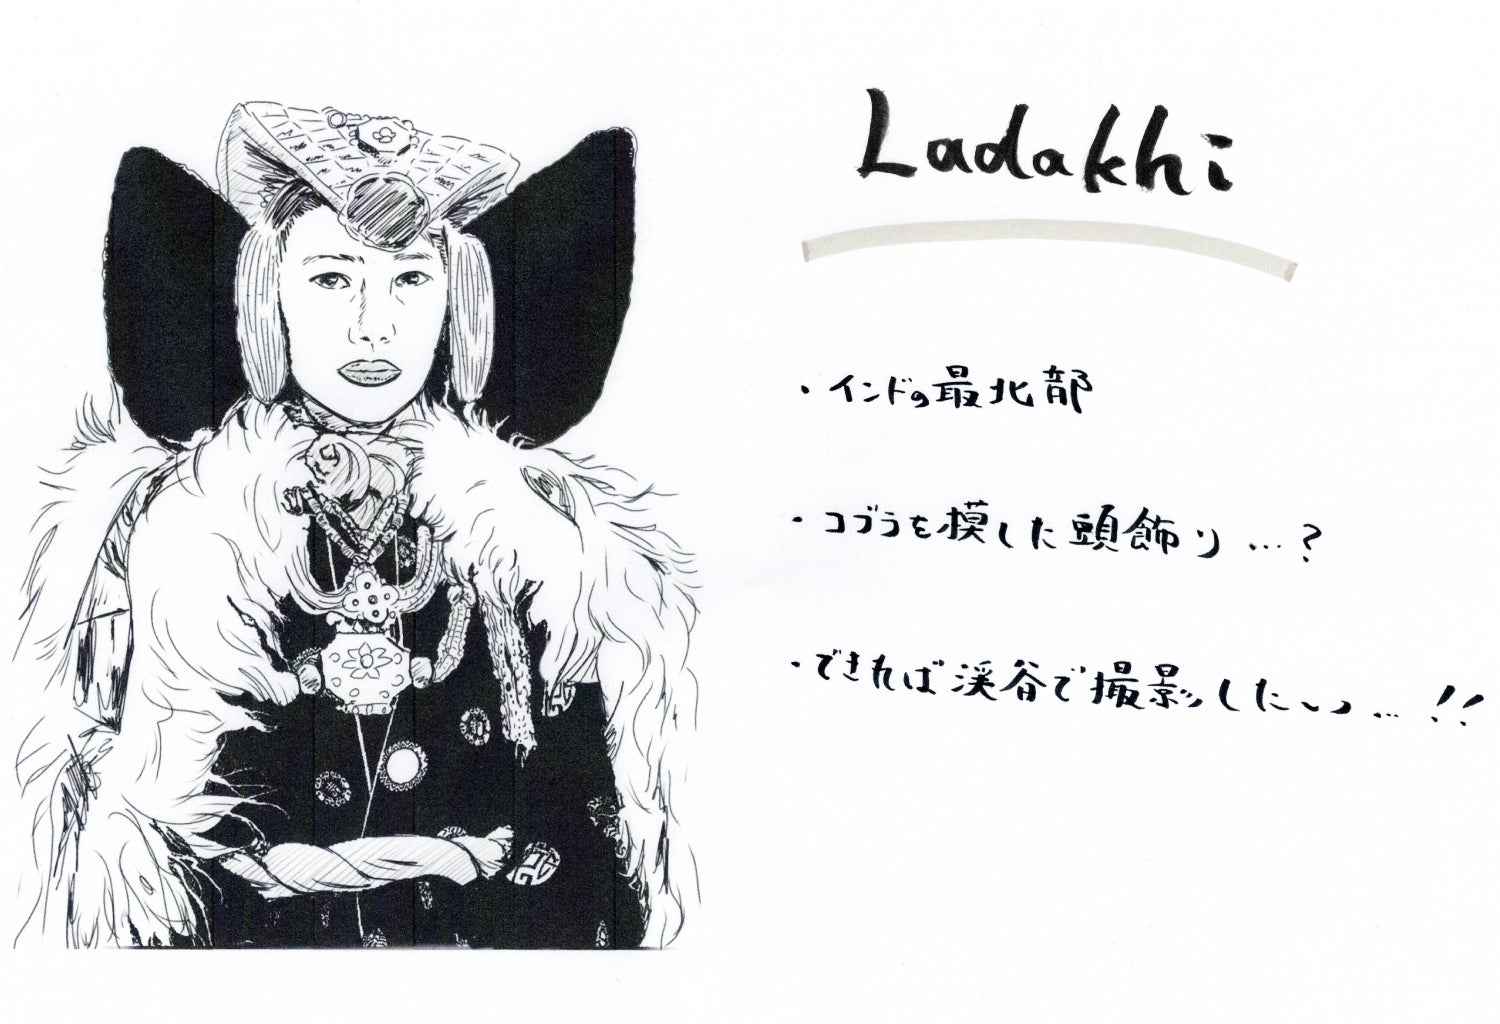 Ladakhi
・インドの最北部
・コブラを模した頭飾り…?
・できれば渓谷で撮影したいっ…!!